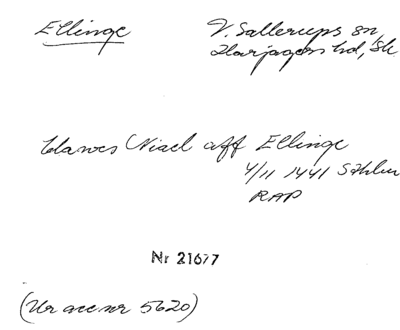 Ellinge
V. Sallerups sn,
Harjagers hd, Sk.
Clawes Niael aff Ellinge
4/11 1441 Sthlm
RAP
Nr 21677
(Ur acc nr 5620)